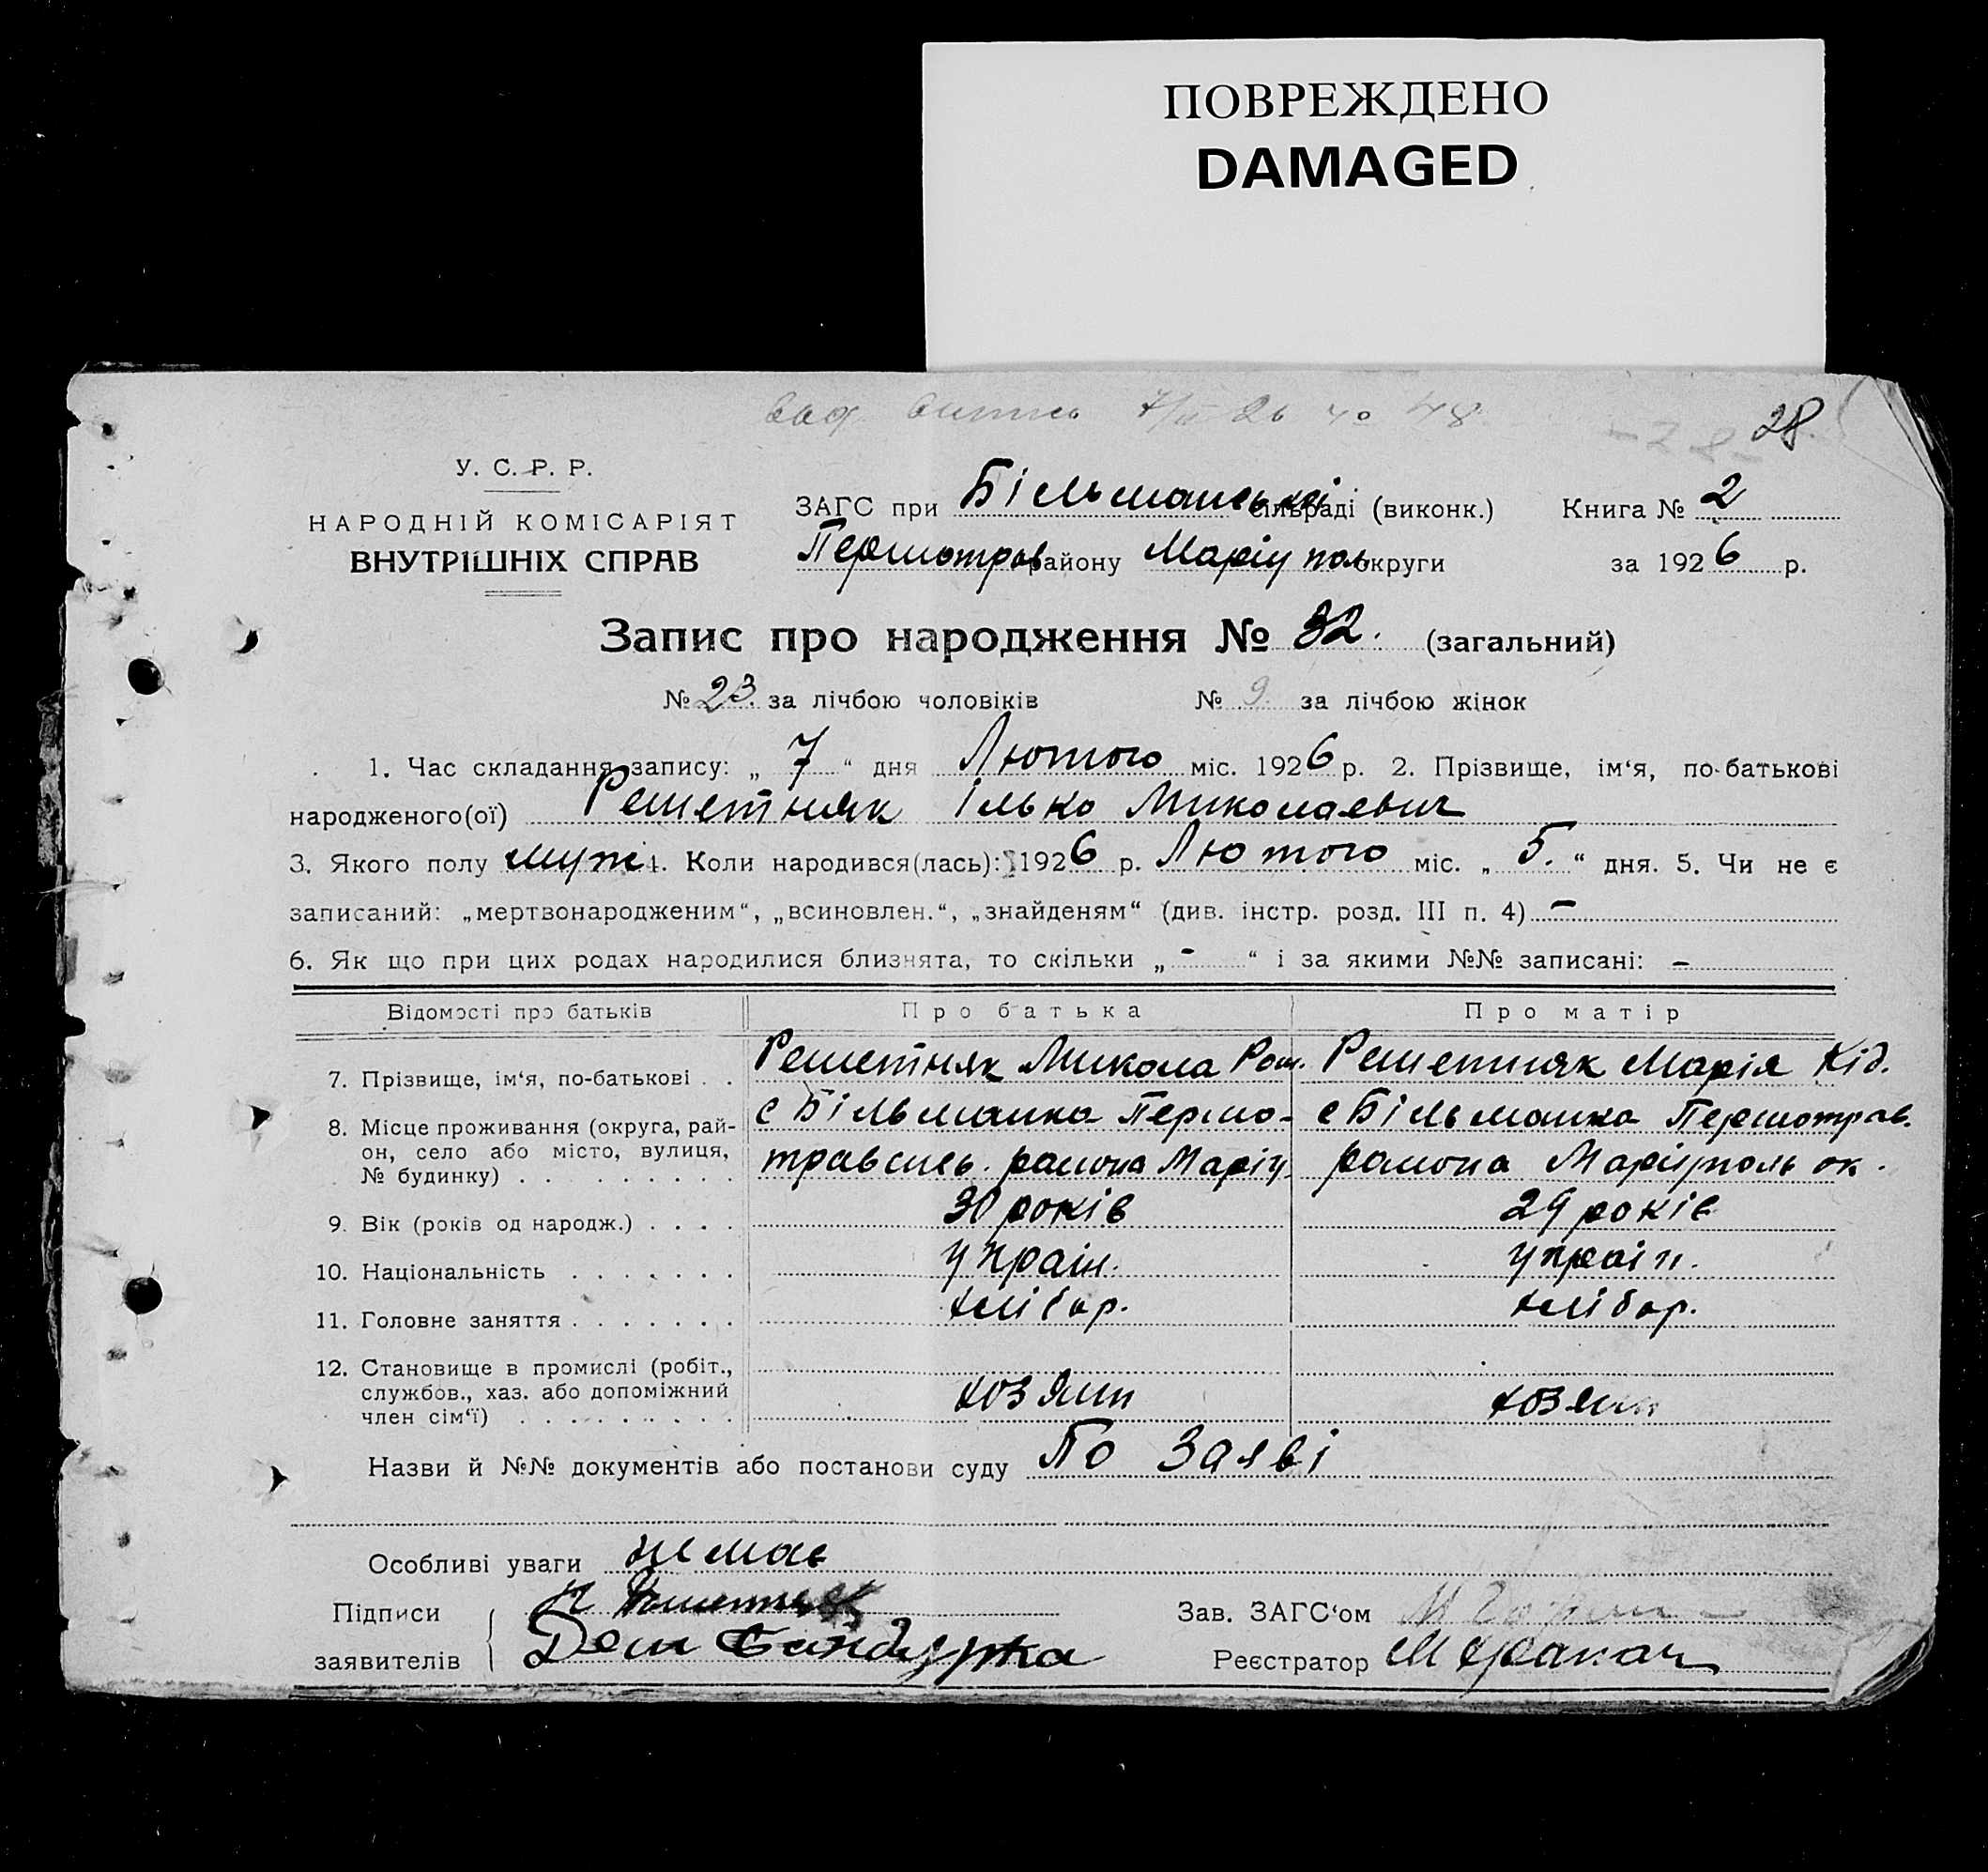 ПОВРЕЖДЕНО
DAMAGED
28.
У. С. Р. Р.
НАРОДНІЙ КОМІСАРІЯТ
ВНУТРІШНІХ СПРАВ
ЗАГС при Більманській сільраді (виконк.) Книга № 2
Першотрав району Маріупол округи за 1926 р.
Запис про народження № 32. (загальний)
№ 23. за лічбою чоловіків № 9. за лічбою жінок
1. Час складання запису: „ 7 “ дня Лютого міс. 1926 р. 2. Прізвище, ім‘я, по-батькові
народженого(ої) Решетняк Ілько Миколаевич
3. Якого полу муж 4. Коли народився(лась): 1926 р. Лютого міс. „ 5. “ дня. 5. Чи не є
записаний: „мертвонародженим“, „всиновлен.“, „знайденям“ (див. інстр. розд. III п. 4) –
6. Як що при цих родах народилися близнята, то скільки „ - “ і за якими №№ записані: –
Відомості про батьків Про батька Про матір
7. Прізвище, ім‘я, по-батькові . . Решетняк Микола Ром. Решетняк Марія Кід.
8. Місце проживання (округа, рай- с Більманка Першо- с Більманка Першотрав.
он, село або місто, вулиця, травенсь. района Маріу. района Маріуполь ок.
№ будинку) . . . . . . . . .
9. Вік (років од народж.) . . . . 30 років 29 років
10. Національність . . . . . . . Україн. Україн.
11. Головне заняття . . . . . . . хлібор. хлібор.
12. Становище в промислі (робіт.,
службов., хаз. або допоміжний хозяин хозяин
член сім‘ї) . . . . . . . . .
Назви й №№ документів або постанови суду По Заяві
Особливі уваги немає
Підписи Зав. ЗАГС‘ом
заявителів Реєстратор